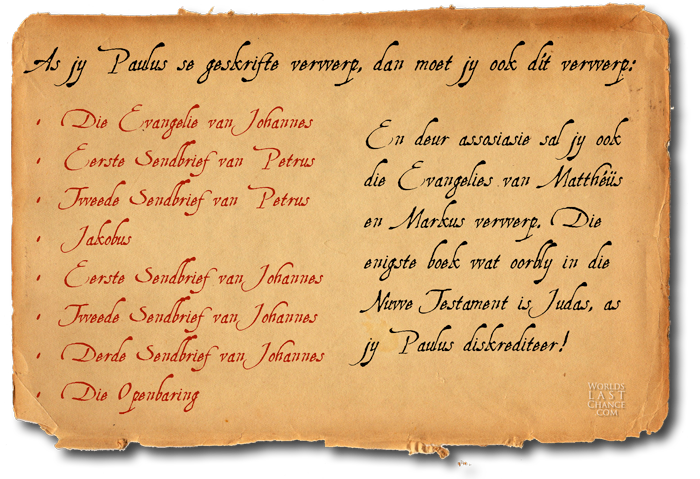 As jy Paulus se geskrifte verwerp, dan moet jy ook dit verwerp:
• Die Evangelie van Johannes
• Eerste Sendbrief van Petrus
• Tweede Sendbrief van Petrus
• Jakobus
• Eerste Sendbrief van Johannes
• Tweede Sendbrief van Johannes
• Derde Sendbrief van Johannes
• Die Openbaring
En deur assosiasie sal jy ook
die Evangelies van Matthéüs
en Markus verwerp. Die
enigste boek wat oorbly in die
Nuwe Testament is Judas, as
jy Paulus diskrediteer!
WORLDS
LAST
CHANCE
.COM